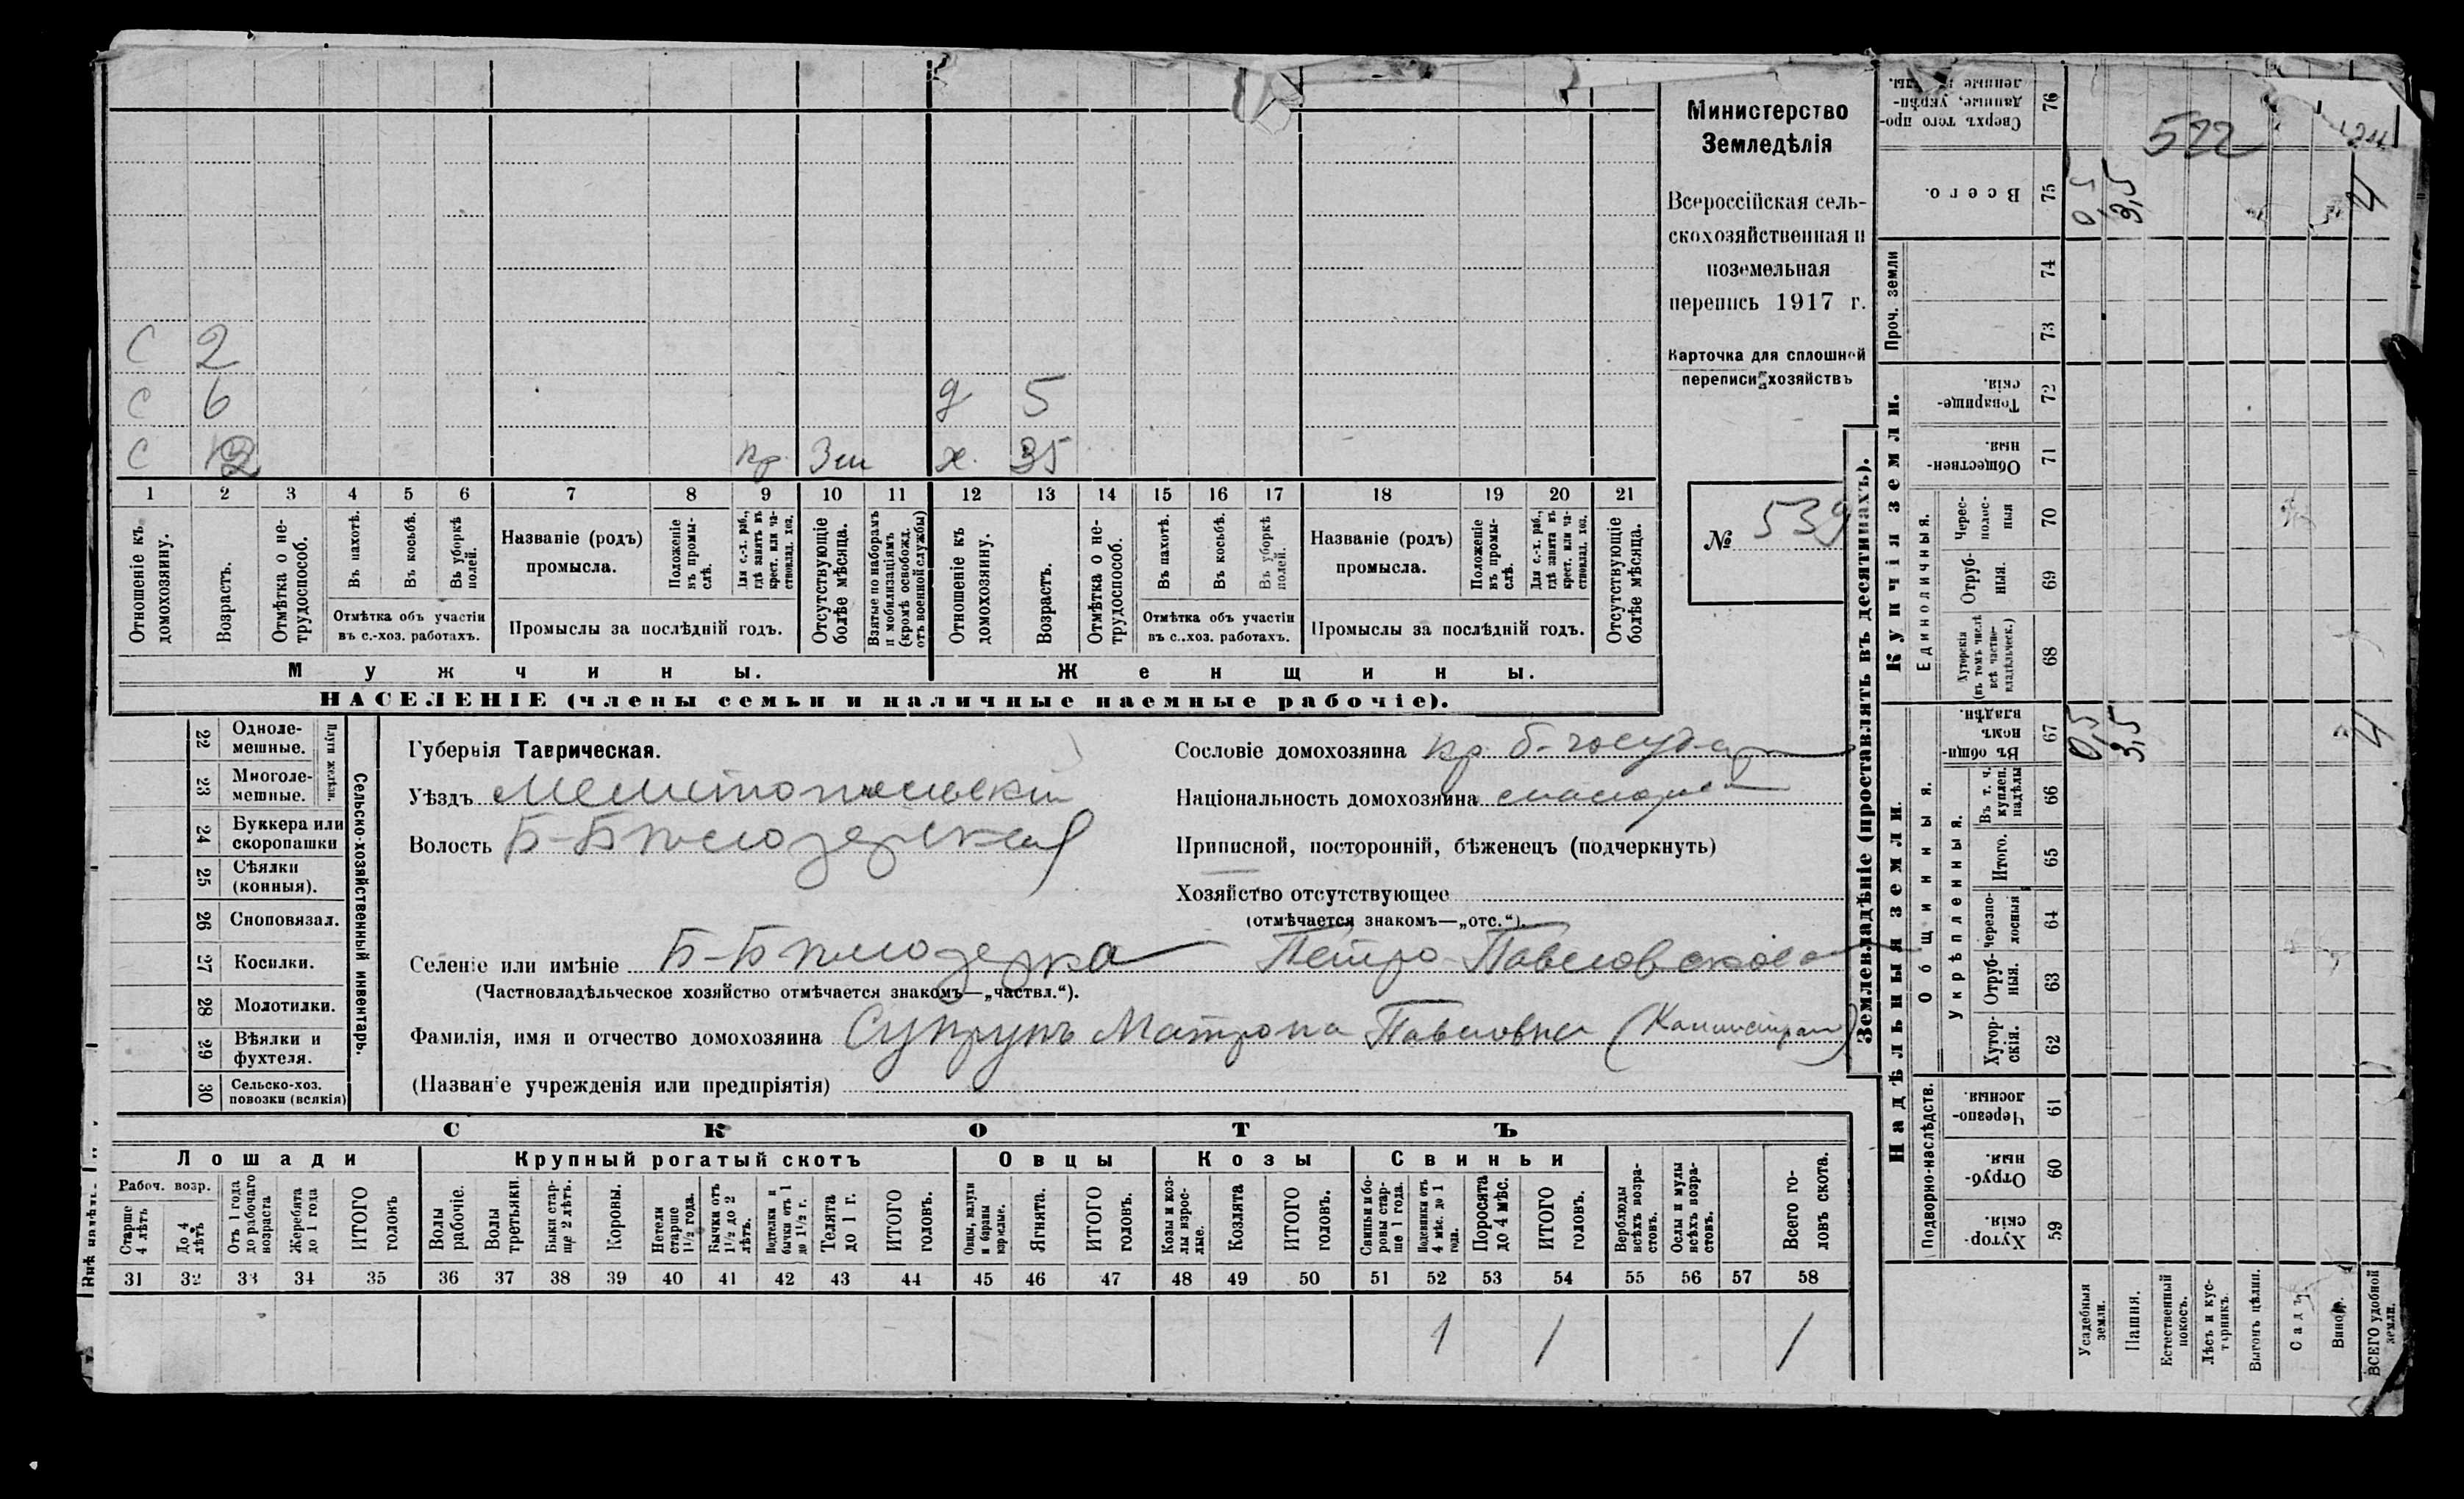 Министерство
Земледѣлія
Всероссійская сель-
скохозяйственная и
поземельная
перепись 1917 г.
Карточка для сплошной
переписи хозяйствъ
№ 539
С 2
С 6 д 5
С кр. х. 35
1 2 3 4 5 6 7 8 9 10 11 12 13 14 15 16 17 18 19 20 21
Отношеніе къ домохозяину.
Возрастъ.
Отмѣтка о не-трудоспособ.
Въ пахотѣ.
Въ косьбѣ.
Въ уборкѣ полей.
Отмѣтка объ участіи
въ с.-хоз. работахъ.
Названіе (родъ)
промысла.
Положеніе въ промы-слѣ.
Для с.-х. раб., гдѣ занятъ въ крест. или ча-ствовлад. хоз.
Промыслы за послѣдній годъ.
Отсутствующіе болѣе мѣсяца.
Взятые по наборамъ и мобилизаціямъ (кромѣ освобожд. отъ военной службы)
Отношеніе къ домохозяину.
Возрастъ.
Отмѣтка о не-трудоспособ.
Въ пахотѣ.
Въ косьбѣ.
Въ уборкѣ полей.
Отмѣтка объ участіи
въ с..хоз. работахъ.
Названіе (родъ)
промысла.
Положеніе въ промы-слѣ.
Для с.-х. раб., гдѣ занята въ крест. или ча-ствовлад. хоз.
Промыслы за послѣдній годъ.
Отсутствующіе болѣе мѣсяца.
Мужчины. Женщины.
НАСЕЛЕНІЕ (члены семьи и наличные наемные рабочіе).
22 Одноле-мешные.
23 Многоле-мешные.
Плуги желѣзн.
24 Буккера или скоропашки
25 Сѣялки (конныя).
26 Сноповязал.
27 Косилки.
28 Молотилки.
29 Вѣялки и фухтеля.
30 Сельско-хоз. повозки (всякія)
Сельско-хозяйственный инвентарь.
Губернія Таврическая.
Уѣздъ Мелитопольскій
Волость Б-Бѣлозерская
Селеніе или имѣніе Б-Бѣлозерка Петро-Павловское
(Частновладѣльческое хозяйство отмѣчается знакомъ—„частвл.“).
Фамилія, имя и отчество домохозяина Супрунъ Матрона Павловна
(Названіе учрежденія или предпріятія)
Сословіе домохозяина кр. б-государ
Національность домохозяина малорос
Приписной, посторонній, бѣженецъ (подчеркнуть)
Хозяйство отсутствующее
(отмѣчается знакомъ—„отс.“).
СКОТЪ
Лошади Крупный рогатый скотъ Овцы Козы Свиньи
Рабоч. возр.
Старше 4 лѣтъ
До 4 лѣтъ
Отъ 1 года до рабочаго возраста
Жеребята до 1 года
ИТОГО головъ
Волы рабочіе.
Волы третьяки.
Быки стар-ще 2 лѣтъ.
Коровы.
Нетели старше 1½ года.
Бычки отъ 1½ до 2 лѣтъ.
Подтелки и бычки отъ 1 до 1½ г.
Телята до 1 г.
ИТОГО головъ.
Овцы, валухи и бараны взрослые.
Ягнята.
ИТОГО головъ.
Козы и коз-лы взрос-лые.
Козлята
ИТОГО головъ.
Свиньи и бо-ровы стар-ше 1 года.
Подсвинки отъ 4 мѣс. до 1 года.
Поросята до 4 мѣс.
ИТОГО головъ.
Верблюды всѣхъ возра-стовъ.
Ослы и мулы всѣхъ возра-стовъ.
Всего го-ловъ скота.
31 32 33 34 35 36 37 38 39 40 41 42 43 44 45 46 47 48 49 50 51 52 53 54 55 56 57 58
1 1 1
Землевладѣніе (проставлять въ десятинахъ).
Сверхъ того про-данные, укрѣп-ленные 76
522
Всего. 75 0,5 3,5 4
Проч. земли 74 73
Купчія земли.
Товарище-скія. 72
Обществен-ныя 71
Единоличныя.
Черес-полос-ныя 70
Отруб-ныя. 69
Хуторскія (въ томъ числѣ всѣ частно-владѣльческ.) 68
Надѣльныя земли.
Общинныя.
Въ общин-номъ владѣн. 67 0,5 3,5 4
Укрѣпленныя.
Въ т. ч. куплен. надѣлы 66
Итого. 65
Черезпо-лосныя 64
Отруб-ныя. 63
Хутор-скія. 62
Подворно-наслѣдств.
Черезпо-лосныя. 61
Отруб-ныя. 60
Хутор-скія. 59
Усадебныя земли.
Пашня.
Естественный покосъ.
Лѣсъ и кус-тарникъ.
Выгонъ цѣлин.
Садъ
Виногр.
ВСЕГО удобной земли.